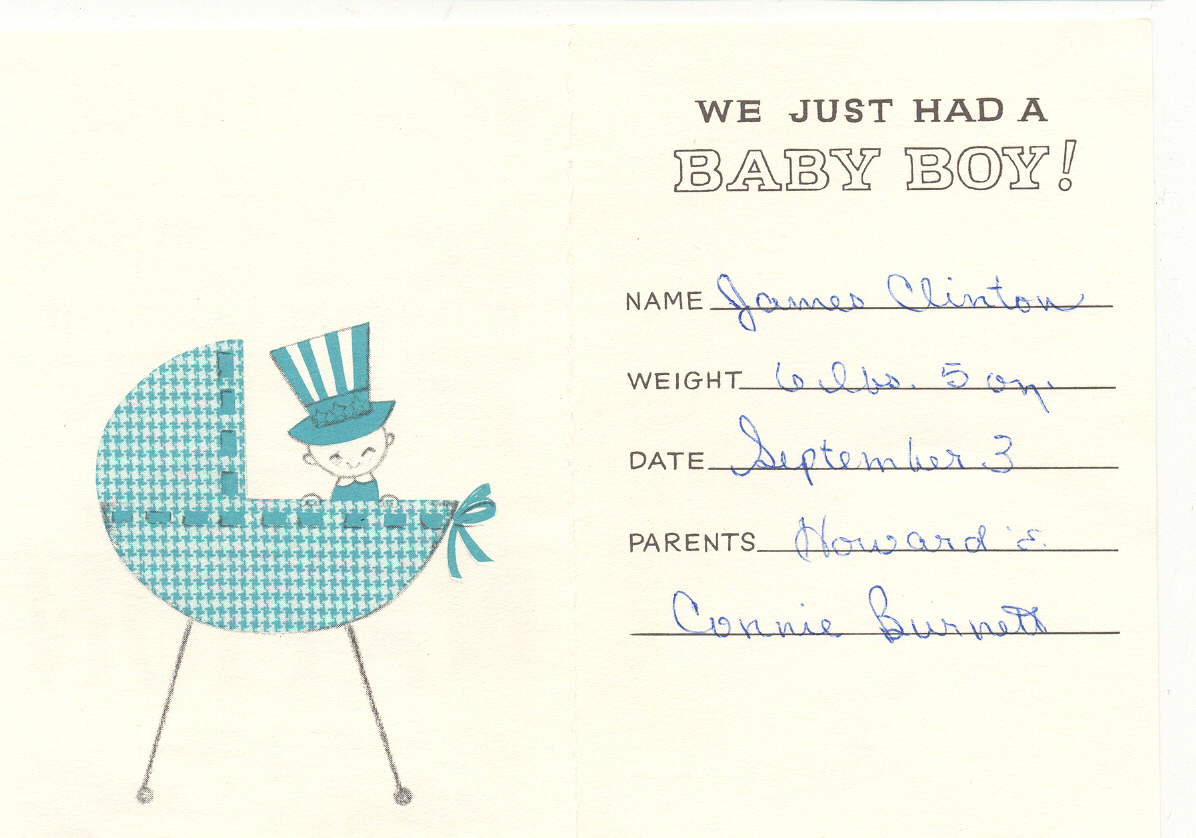 WE JUST HAD A
BABY BOY!
NAME James Clinton
WEIGHT 6 lbs. 5 oz.
DATE September 3
PARENTS Howard &
Connie Burnett